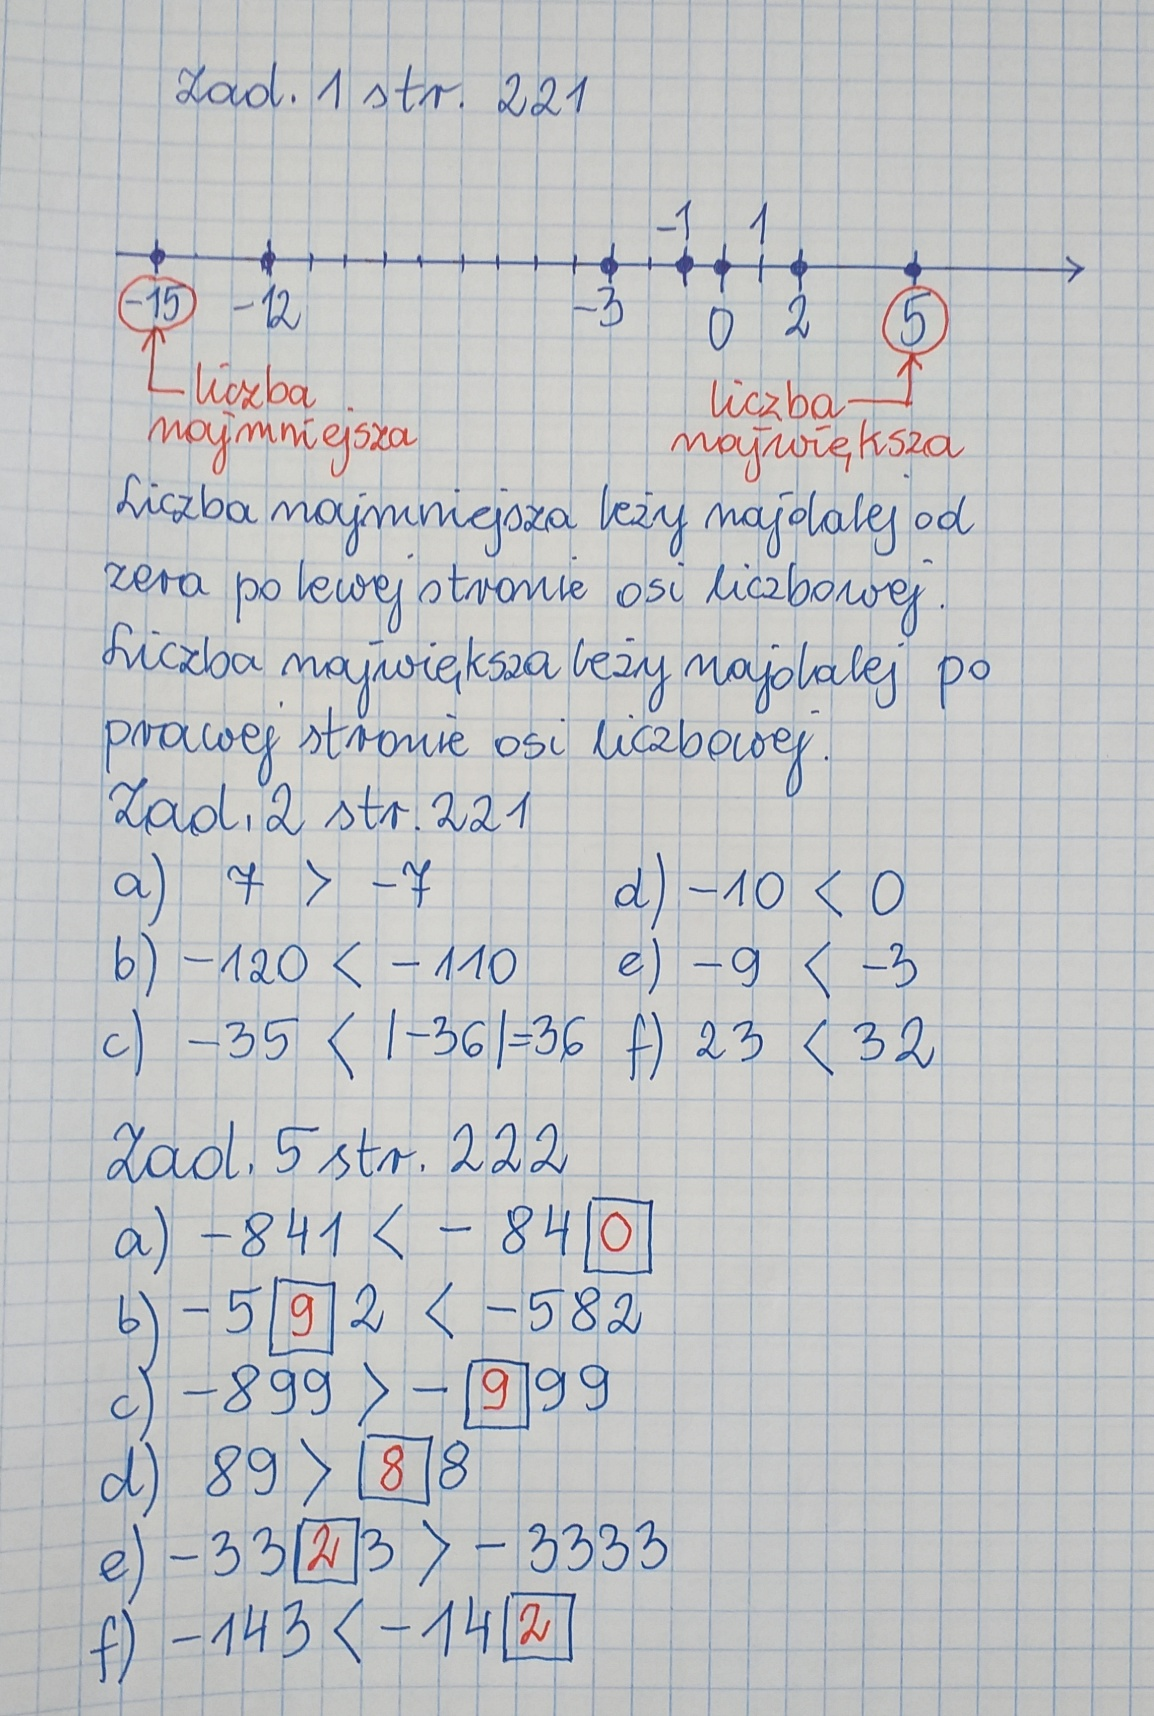 Zad. 1 str. 221
-1 1
-15 -12 -3 0 2 5
liczba
najmniejsza
liczba
największa
Liczba najmniejsza leży najdalej od
zera po lewej stronie osi liczbowej.
Liczba największa leży najdalej po
prawej stronie osi liczbowej.
Zad. 2 str. 221
a) 7 > -7
b) -120 < -110
c) -35 < |-36|=36
d) -10 < 0
e) -9 < -3
f) 23 < 32
Zad. 5 str. 222
a) -841 < - 840
b) -592 < -582
c) -899 > -999
d) 89 > 88
e) -3323 > -3333
f) -143 < -142